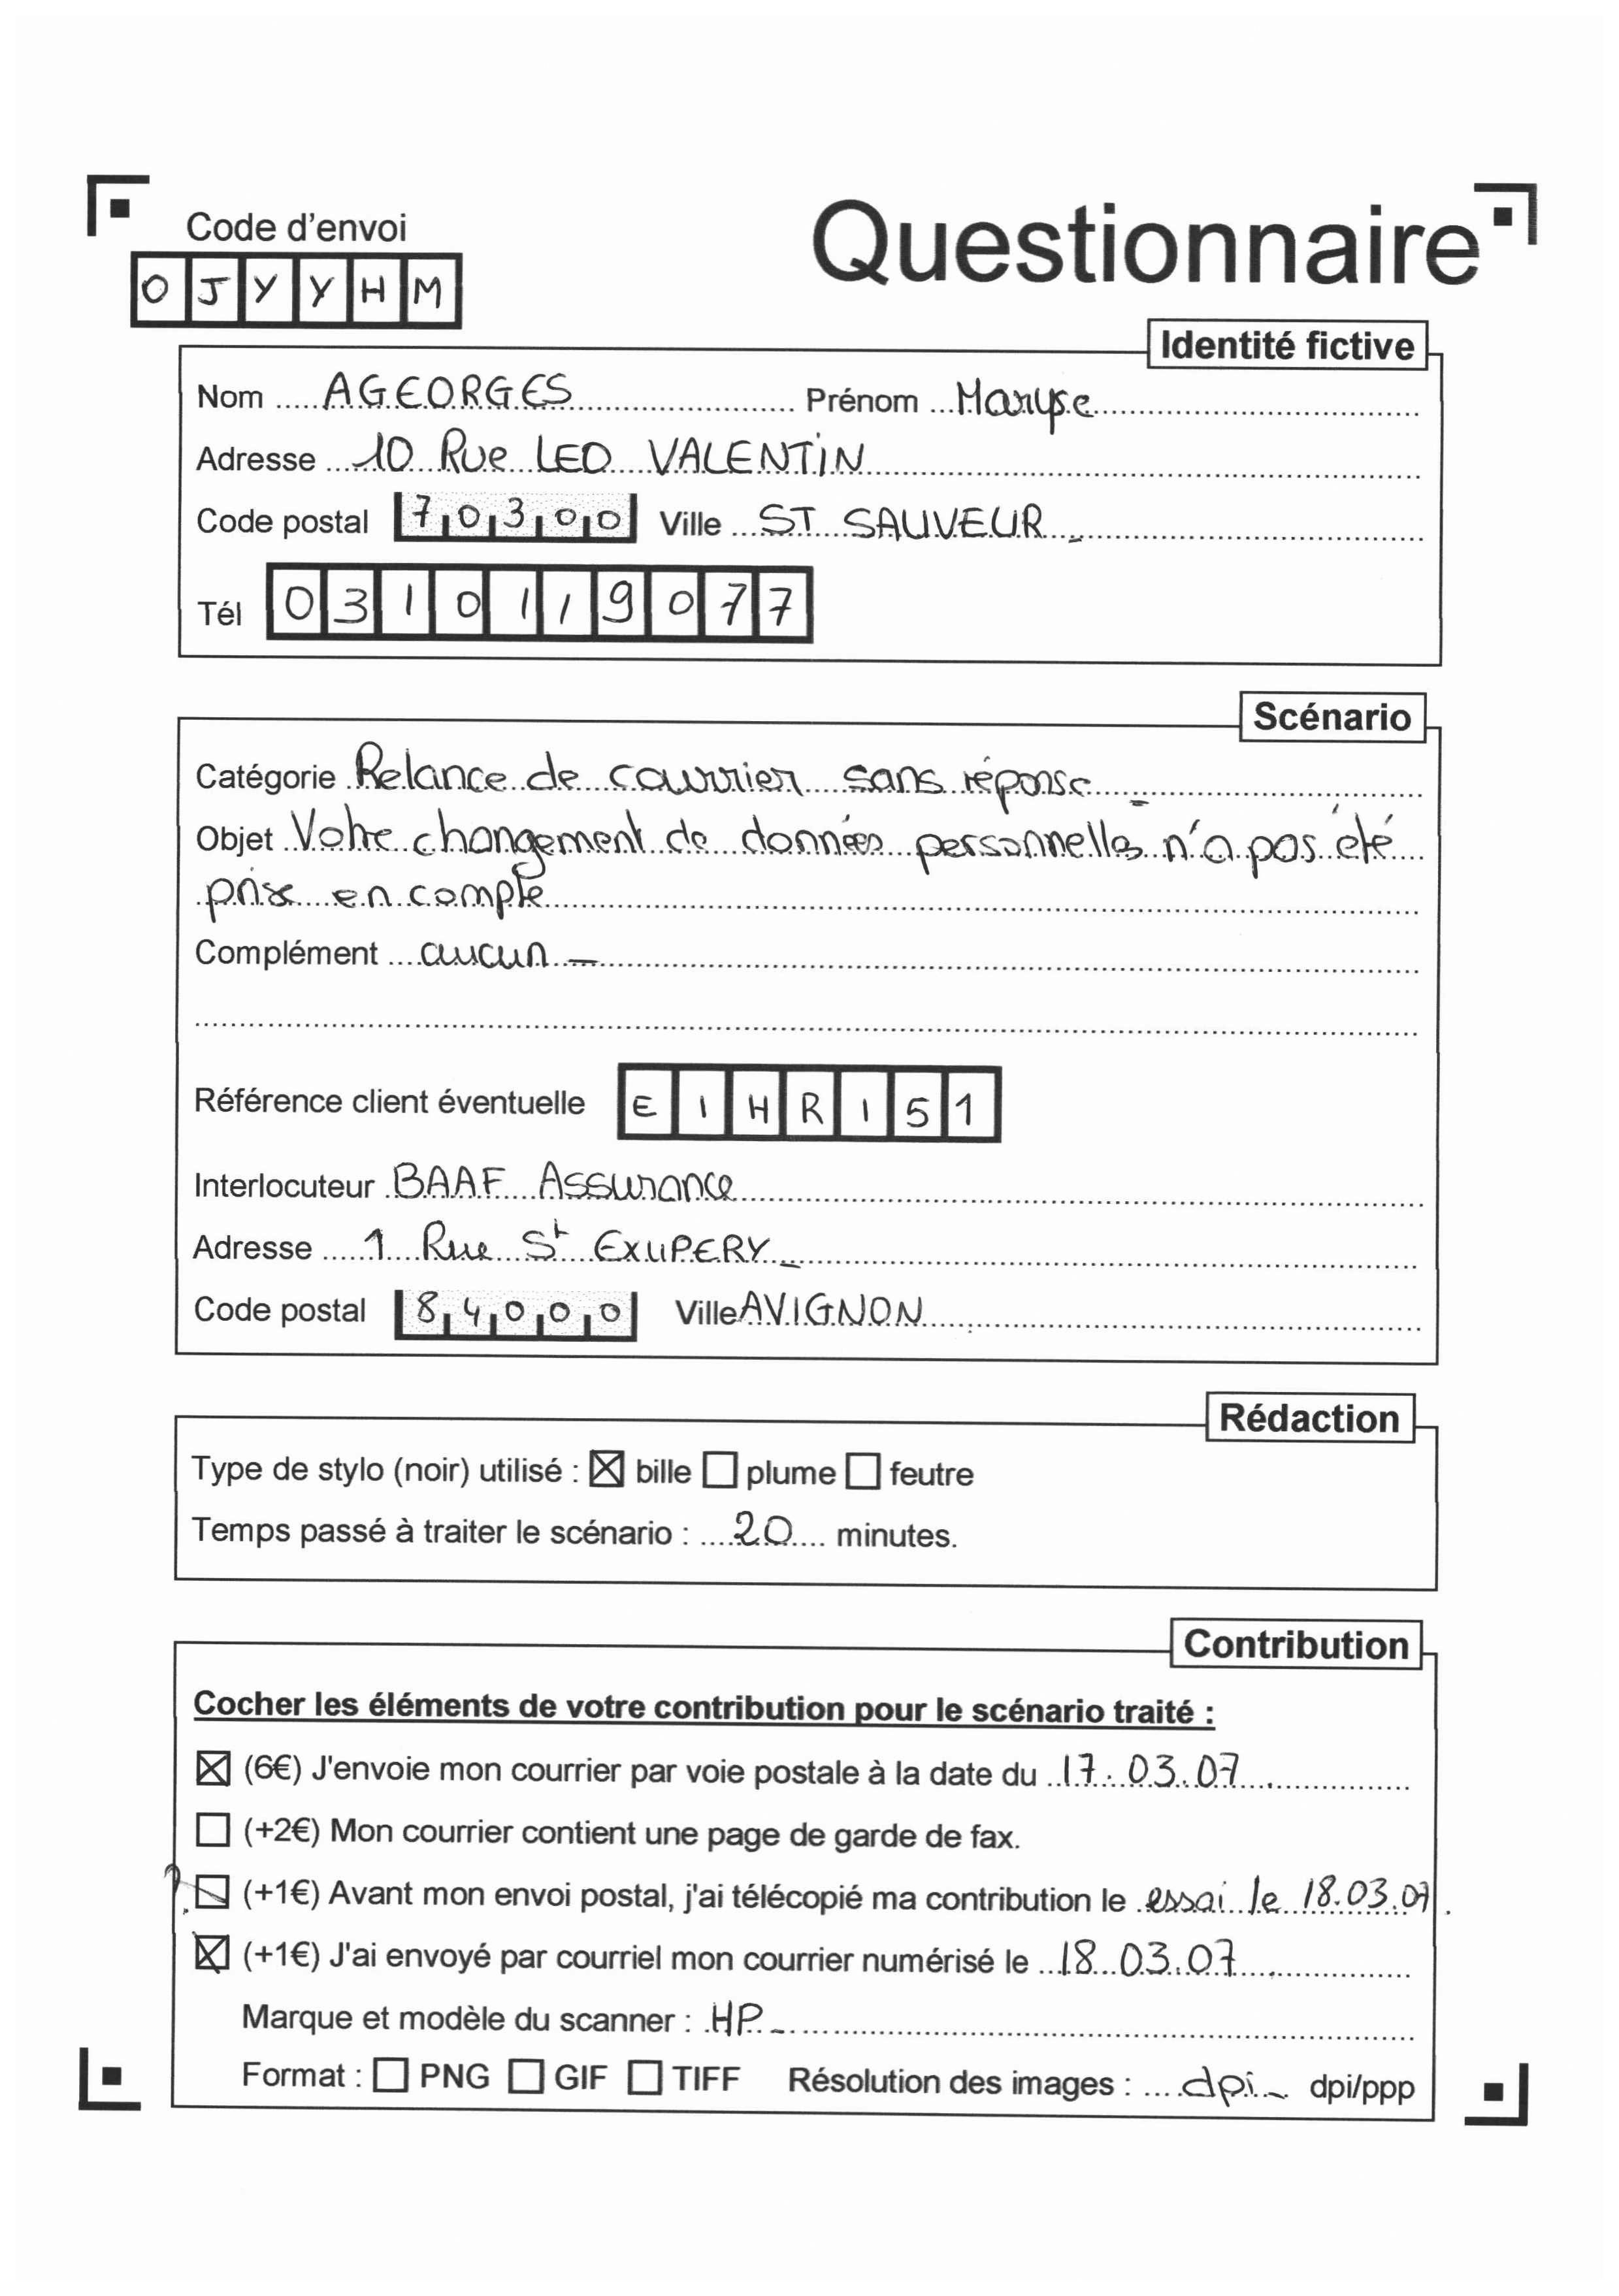 Code d'envoi
Questionnaire
OJYYHM
Identité fictive
Nom AGEORGES Prénom Maryse
Adresse 10 Rue LEO VALENTIN
Code postal 70300 Ville ST SAUVEUR
Tél 0310119077
Scénario
Catégorie Relance de courrier sans réponse
Objet Votre changement de données personnelles n'a pas été
prise en compte
Complément aucun
Référence client éventuelle EIHRI51
Interlocuteur BAAF Assurance
Adresse 1 Rue St EXUPERY
Code postal 84000 Ville AVIGNON
Rédaction
Type de stylo (noir) utilisé : ☒ bille ☐ plume ☐ feutre
Temps passé à traiter le scénario : 20 minutes.
Contribution
Cocher les éléments de votre contribution pour le scénario traité :
☒ (6€) J'envoie mon courrier par voie postale à la date du 17.03.07
☐ (+2€) Mon courrier contient une page de garde de fax.
? ☐ (+1€) Avant mon envoi postal, j'ai télécopié ma contribution le essai le 18.03.07.
☒ (+1€) J'ai envoyé par courriel mon courrier numérisé le 18.03.07
Marque et modèle du scanner : HP
Format : ☐ PNG ☐ GIF ☐ TIFF Résolution des images : dpi dpi/ppp